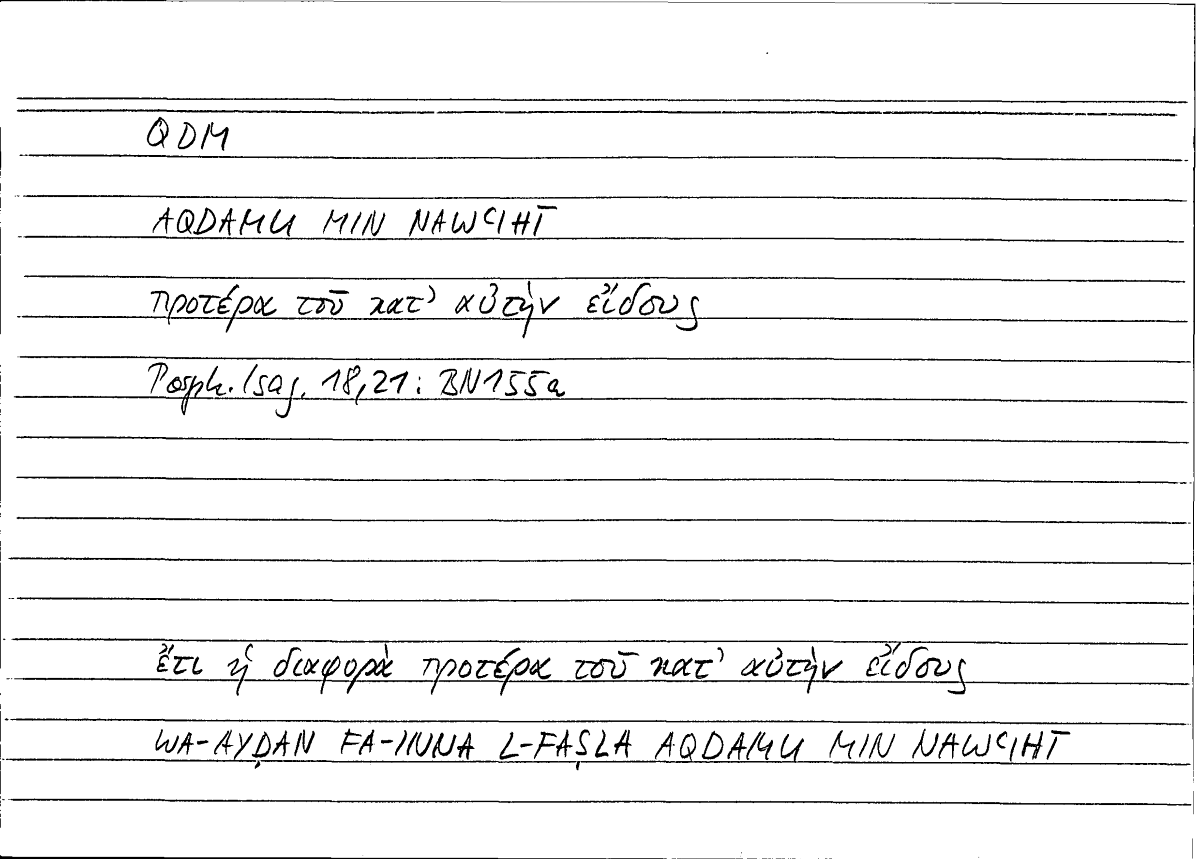 QDM
AQDAMU MIN NAWʿIHĪ
προτέρα τοῦ κατ' αὐτὴν εἴδους
Porph. Isag. 18,21: BN155a
ἔτι ἡ διαφορὰ προτέρα τοῦ κατ' αὐτὴν εἴδους
WA-AYḌAN FA-INNA L-FAṢLA AQDAMU MIN NAWʿIHĪ